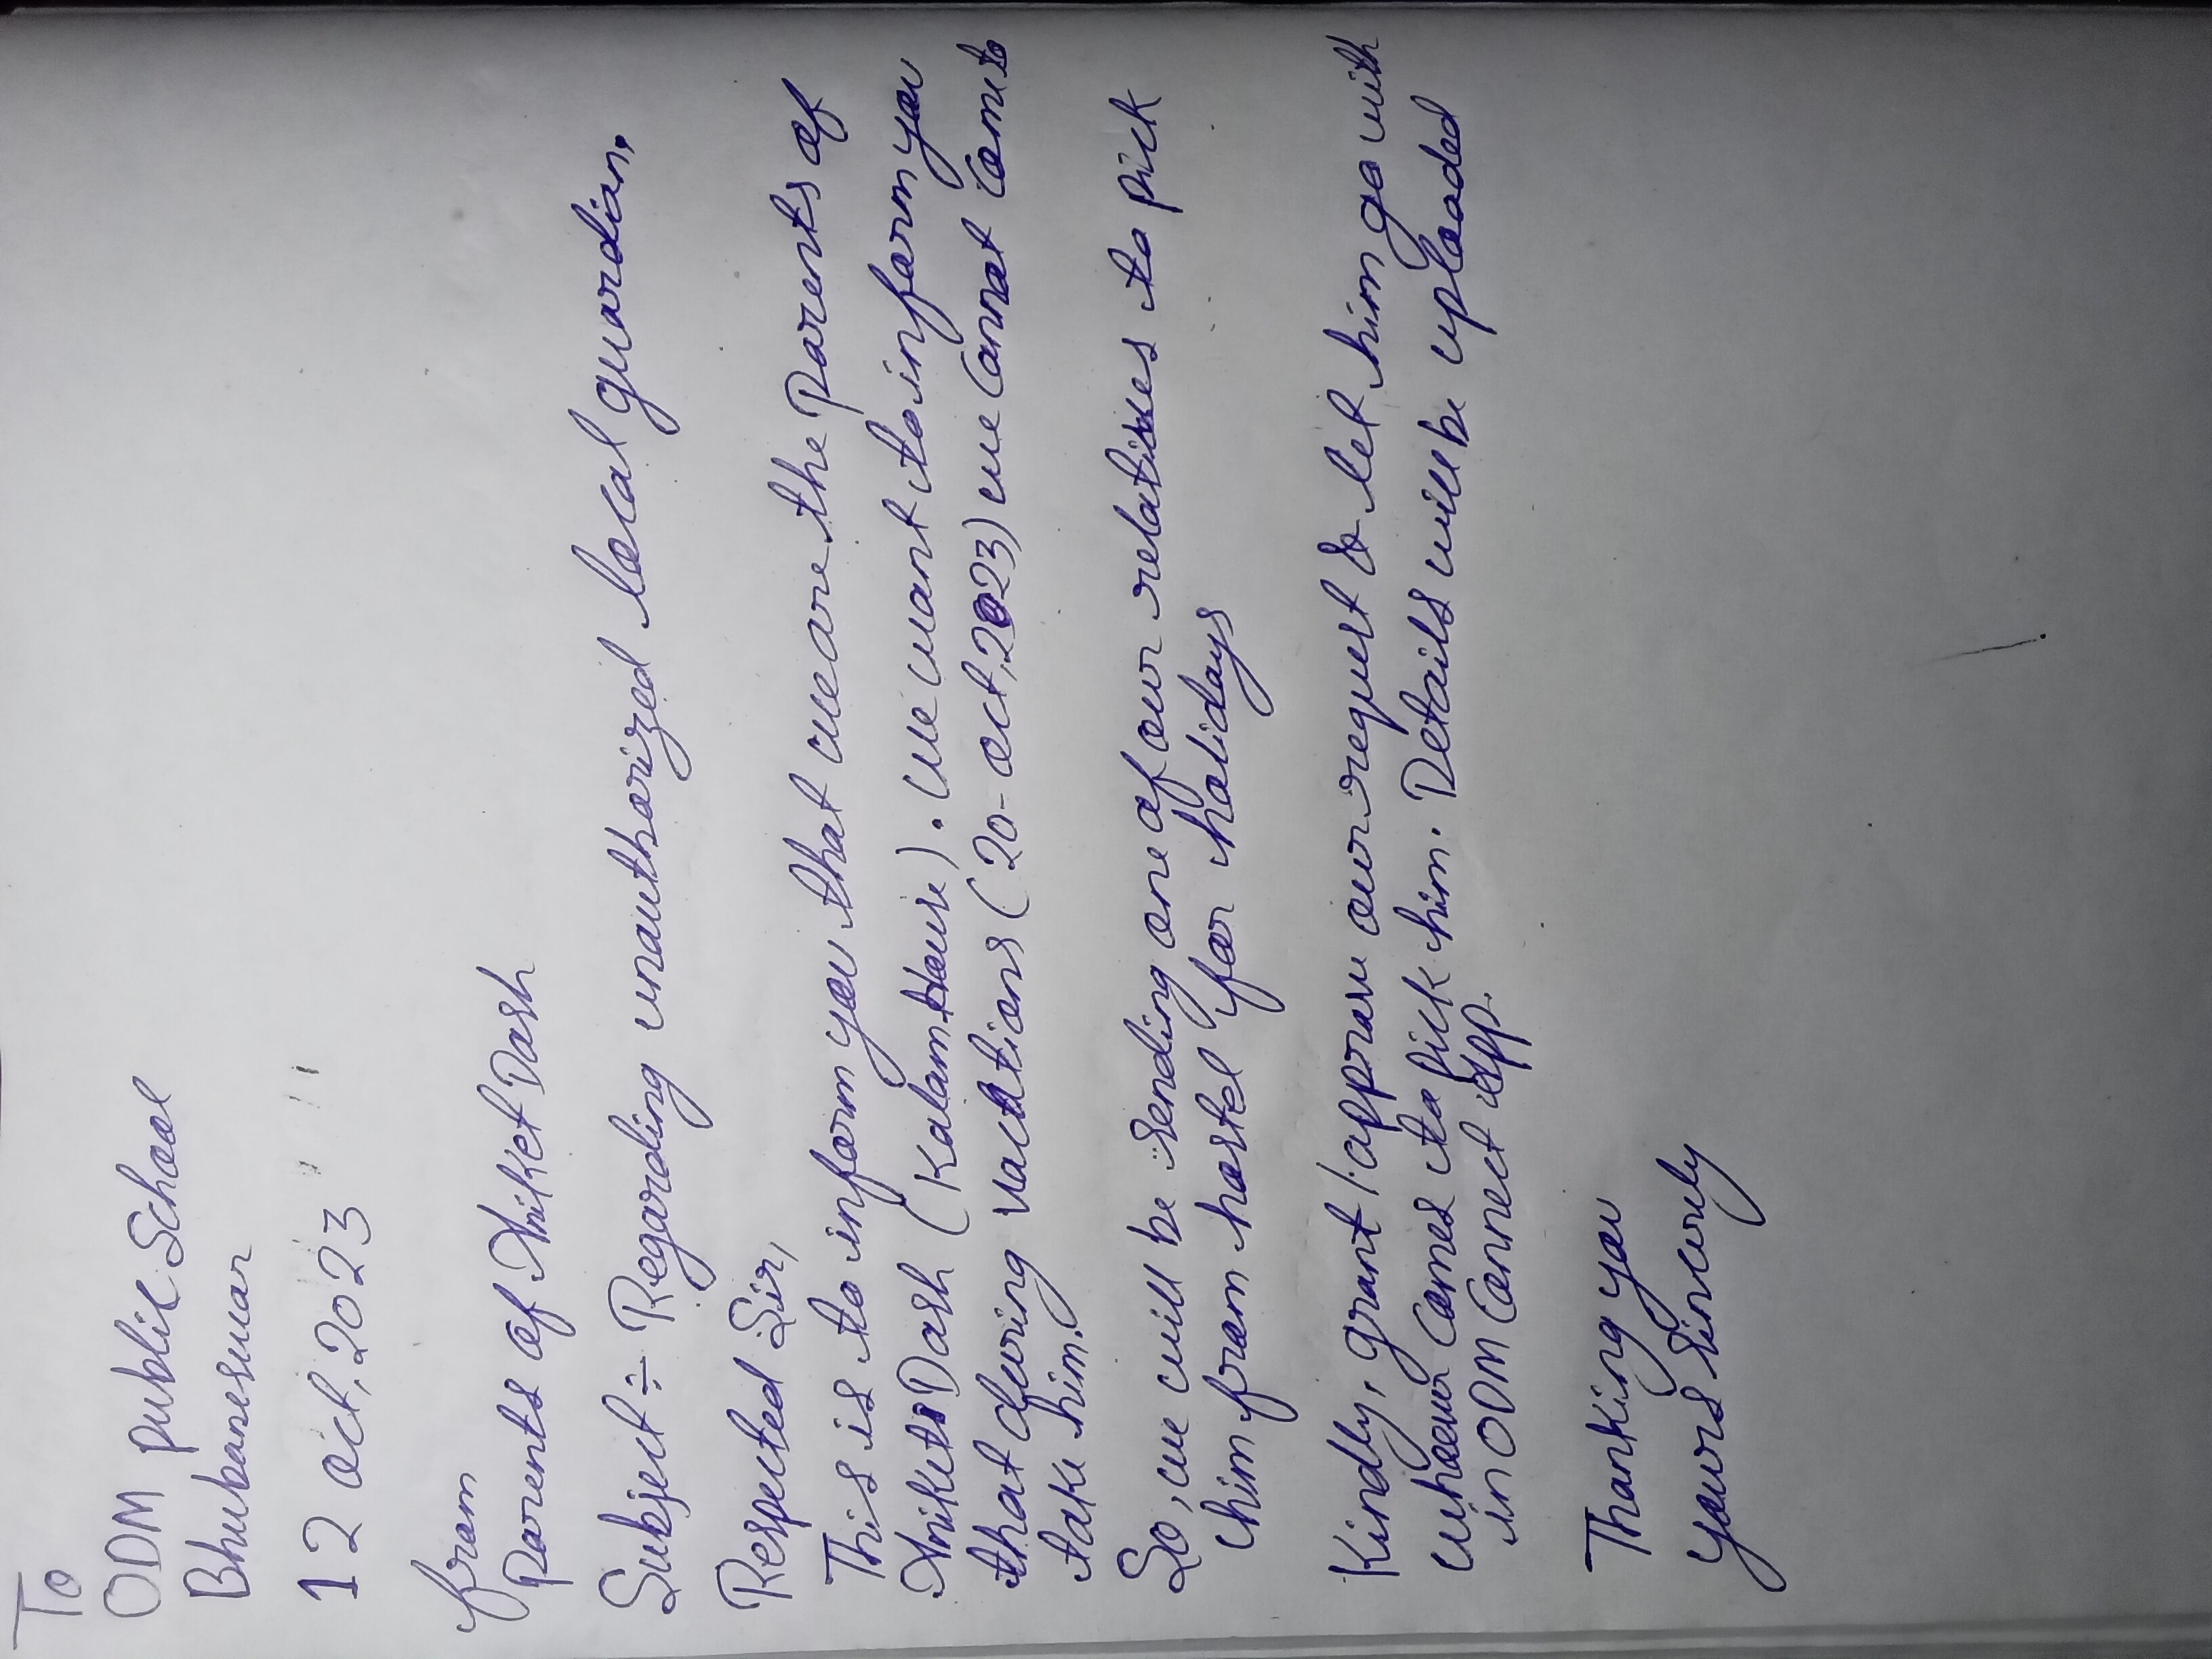 To
ODM public School
Bhubaneswar
12 oct, 2023
from
Parents of Aniket Dash
Subject ÷ Regarding unauthorized local guardian.
Respected Sir,
This is to inform you that we are the Parents of
Aniket Dash (Kalam House). We want to inform you
that during vacations (20-oct, 2023) we Cannot Come to
take him.
So, we will be sending one of our relatives to pick
him from hostel for holidays
Kindly, grant / approve our request & let him go with
whoever Comes to pick him. Details will be uploaded
in ODM Connect App.
Thanking you
yours Sincerely